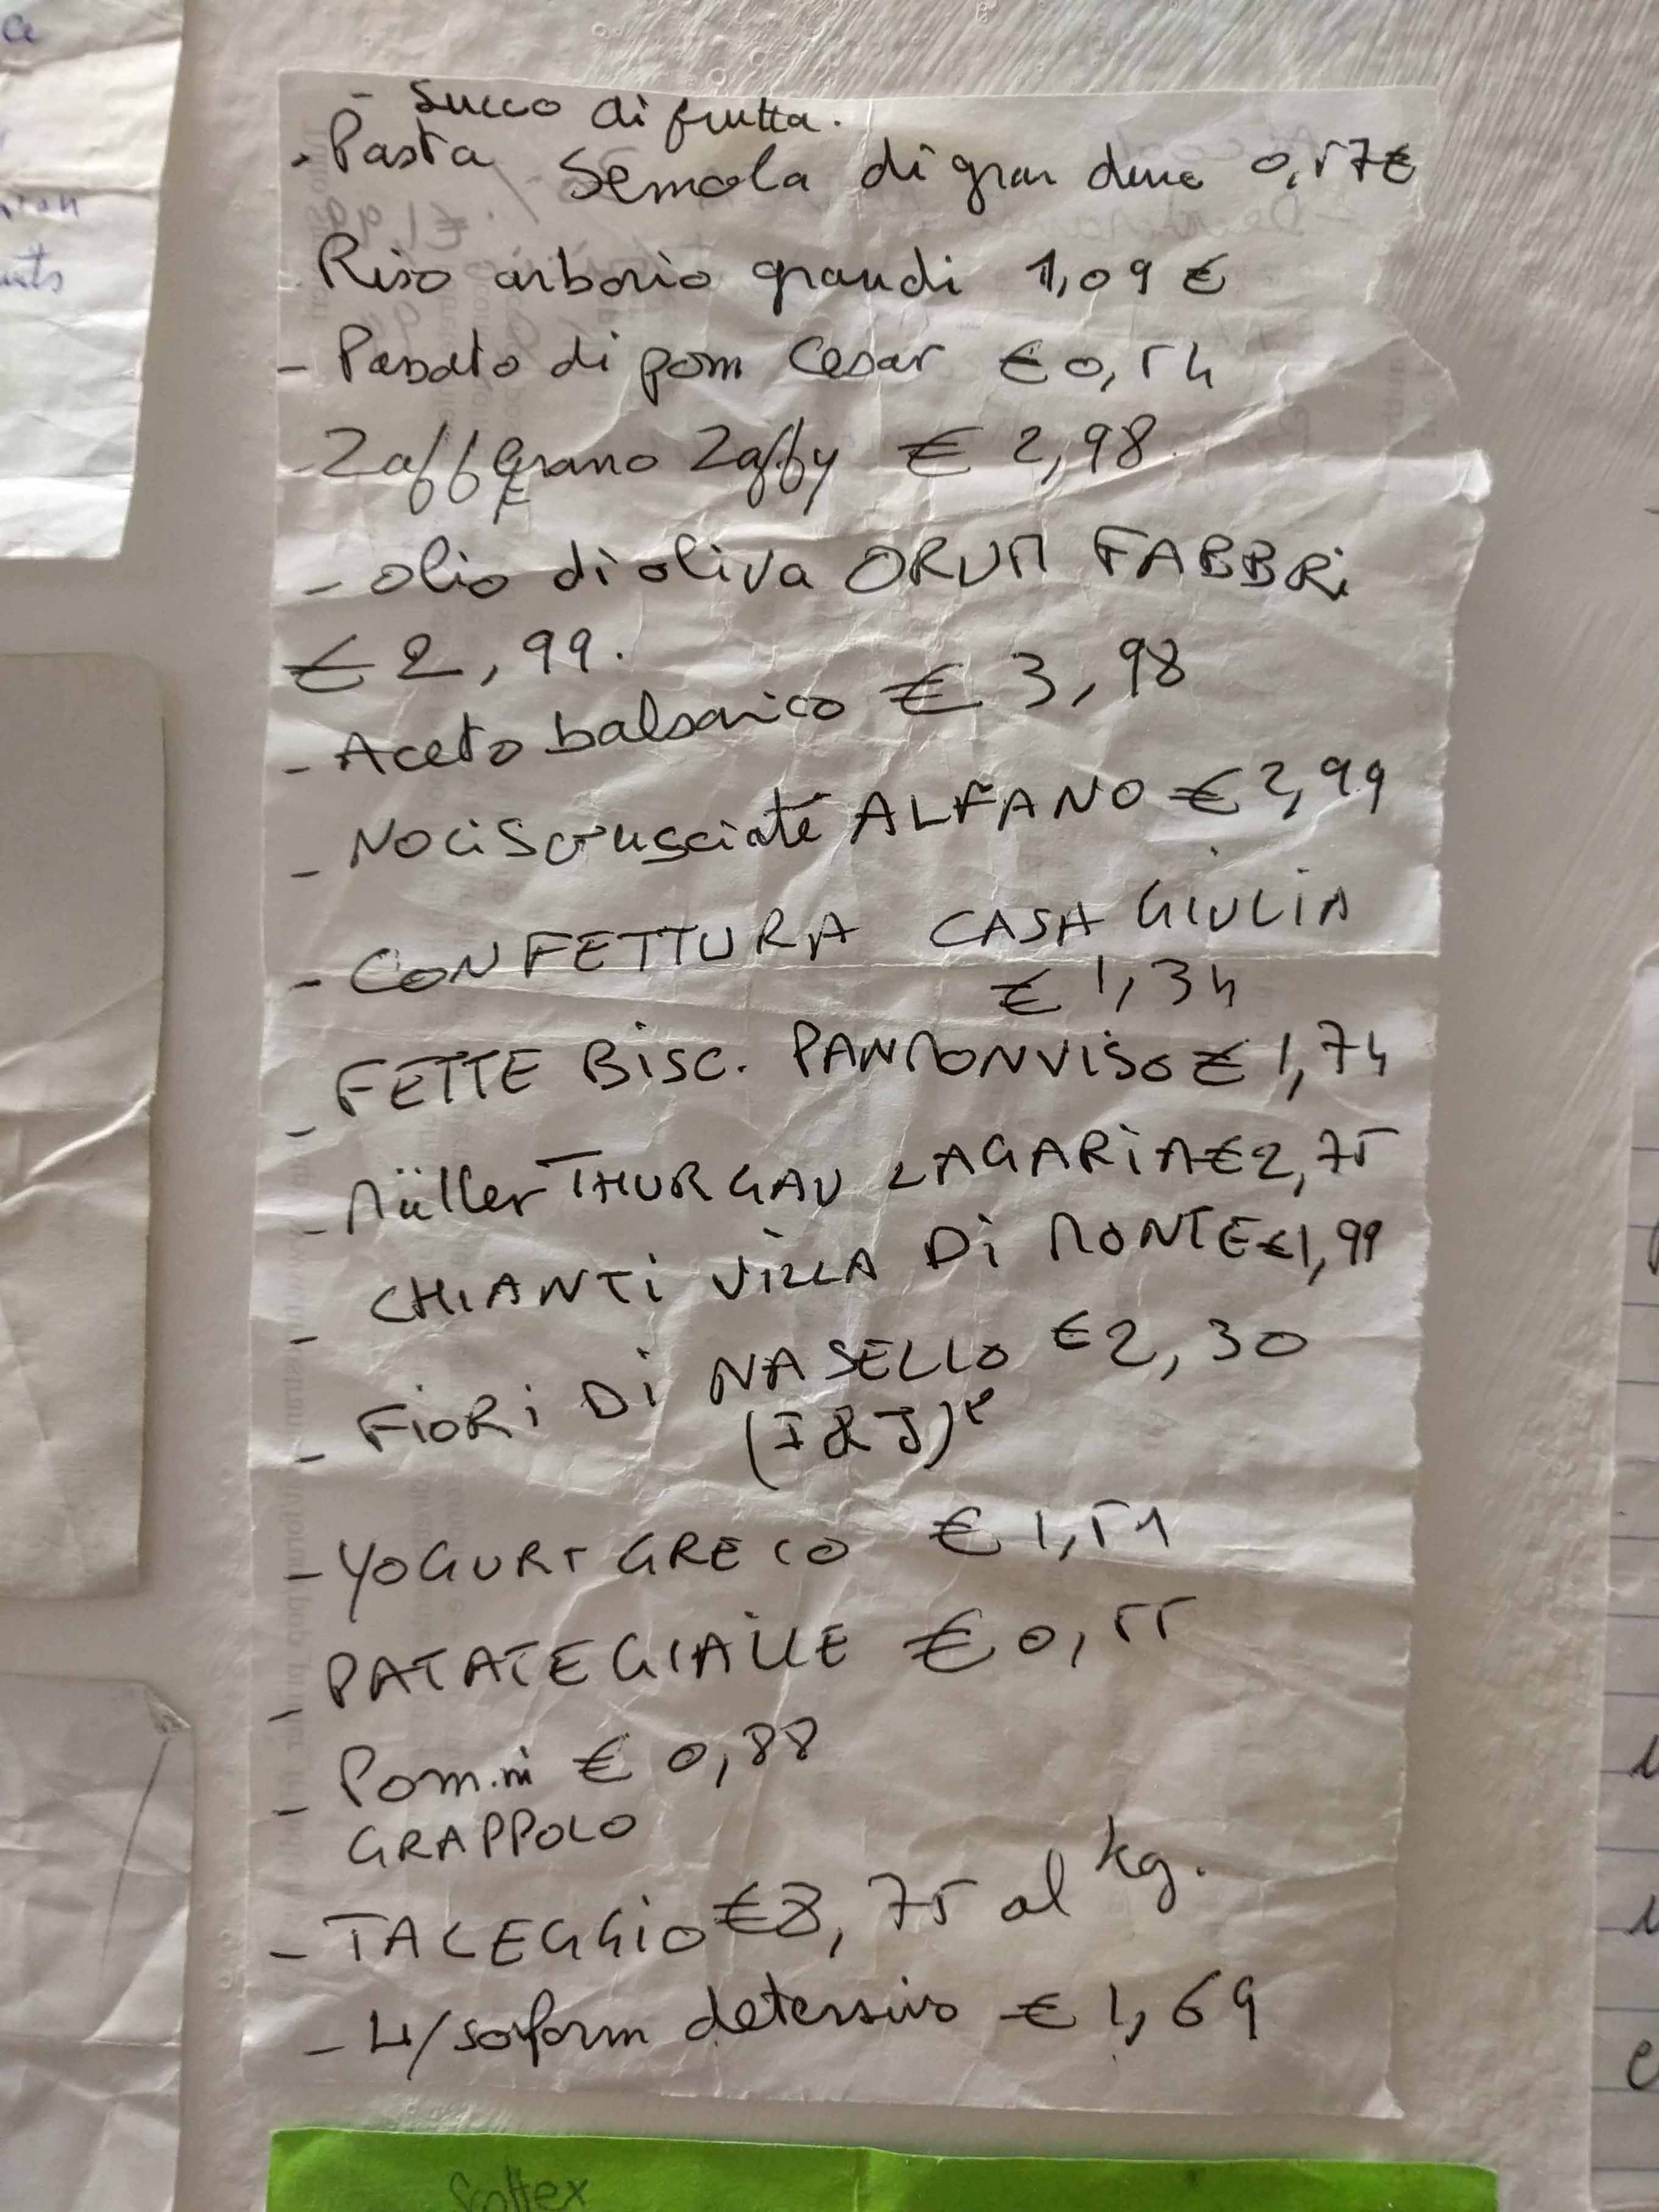 - Succo di frutta.
- Pasta Semola di gran duro 0,57€
Riso arborio grandi 1,09 €
- Passato di pom Cesar € 0,54
- Zafferano Zaffy € 2,98
- olio di oliva ORUM FABBRi
€ 2,99.
- Aceto balsamico € 3,98
- NOCiSGusciate ALFANO € 2,99
- CONFETTURA CASA GIULIA
€ 1,34
- FETTE BiSC. PANMONVISO € 1,74
- Müller THURGAU LAGARiA € 2,75
- CHIANTi ViLLA Di MONTE € 1,99
- FiORi Di NASELLO € 2,30
(I & J)
- YOGURT GRECO € 1,51
- PATATE GIALLE € 0,55
- Pom.ni € 0,88
GRAPPOLO
- TALEGGiO € 8,75 al kg.
- detersivo € 1,69
Scottex